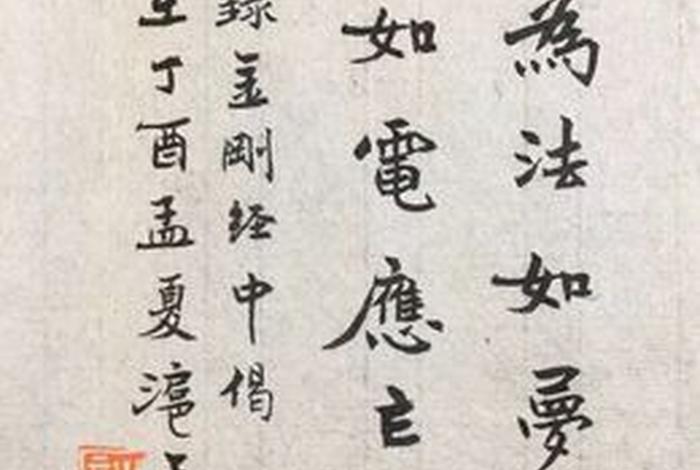 為法如夢
如電應亡
錄金剛経中偈
丁酉孟夏滬上